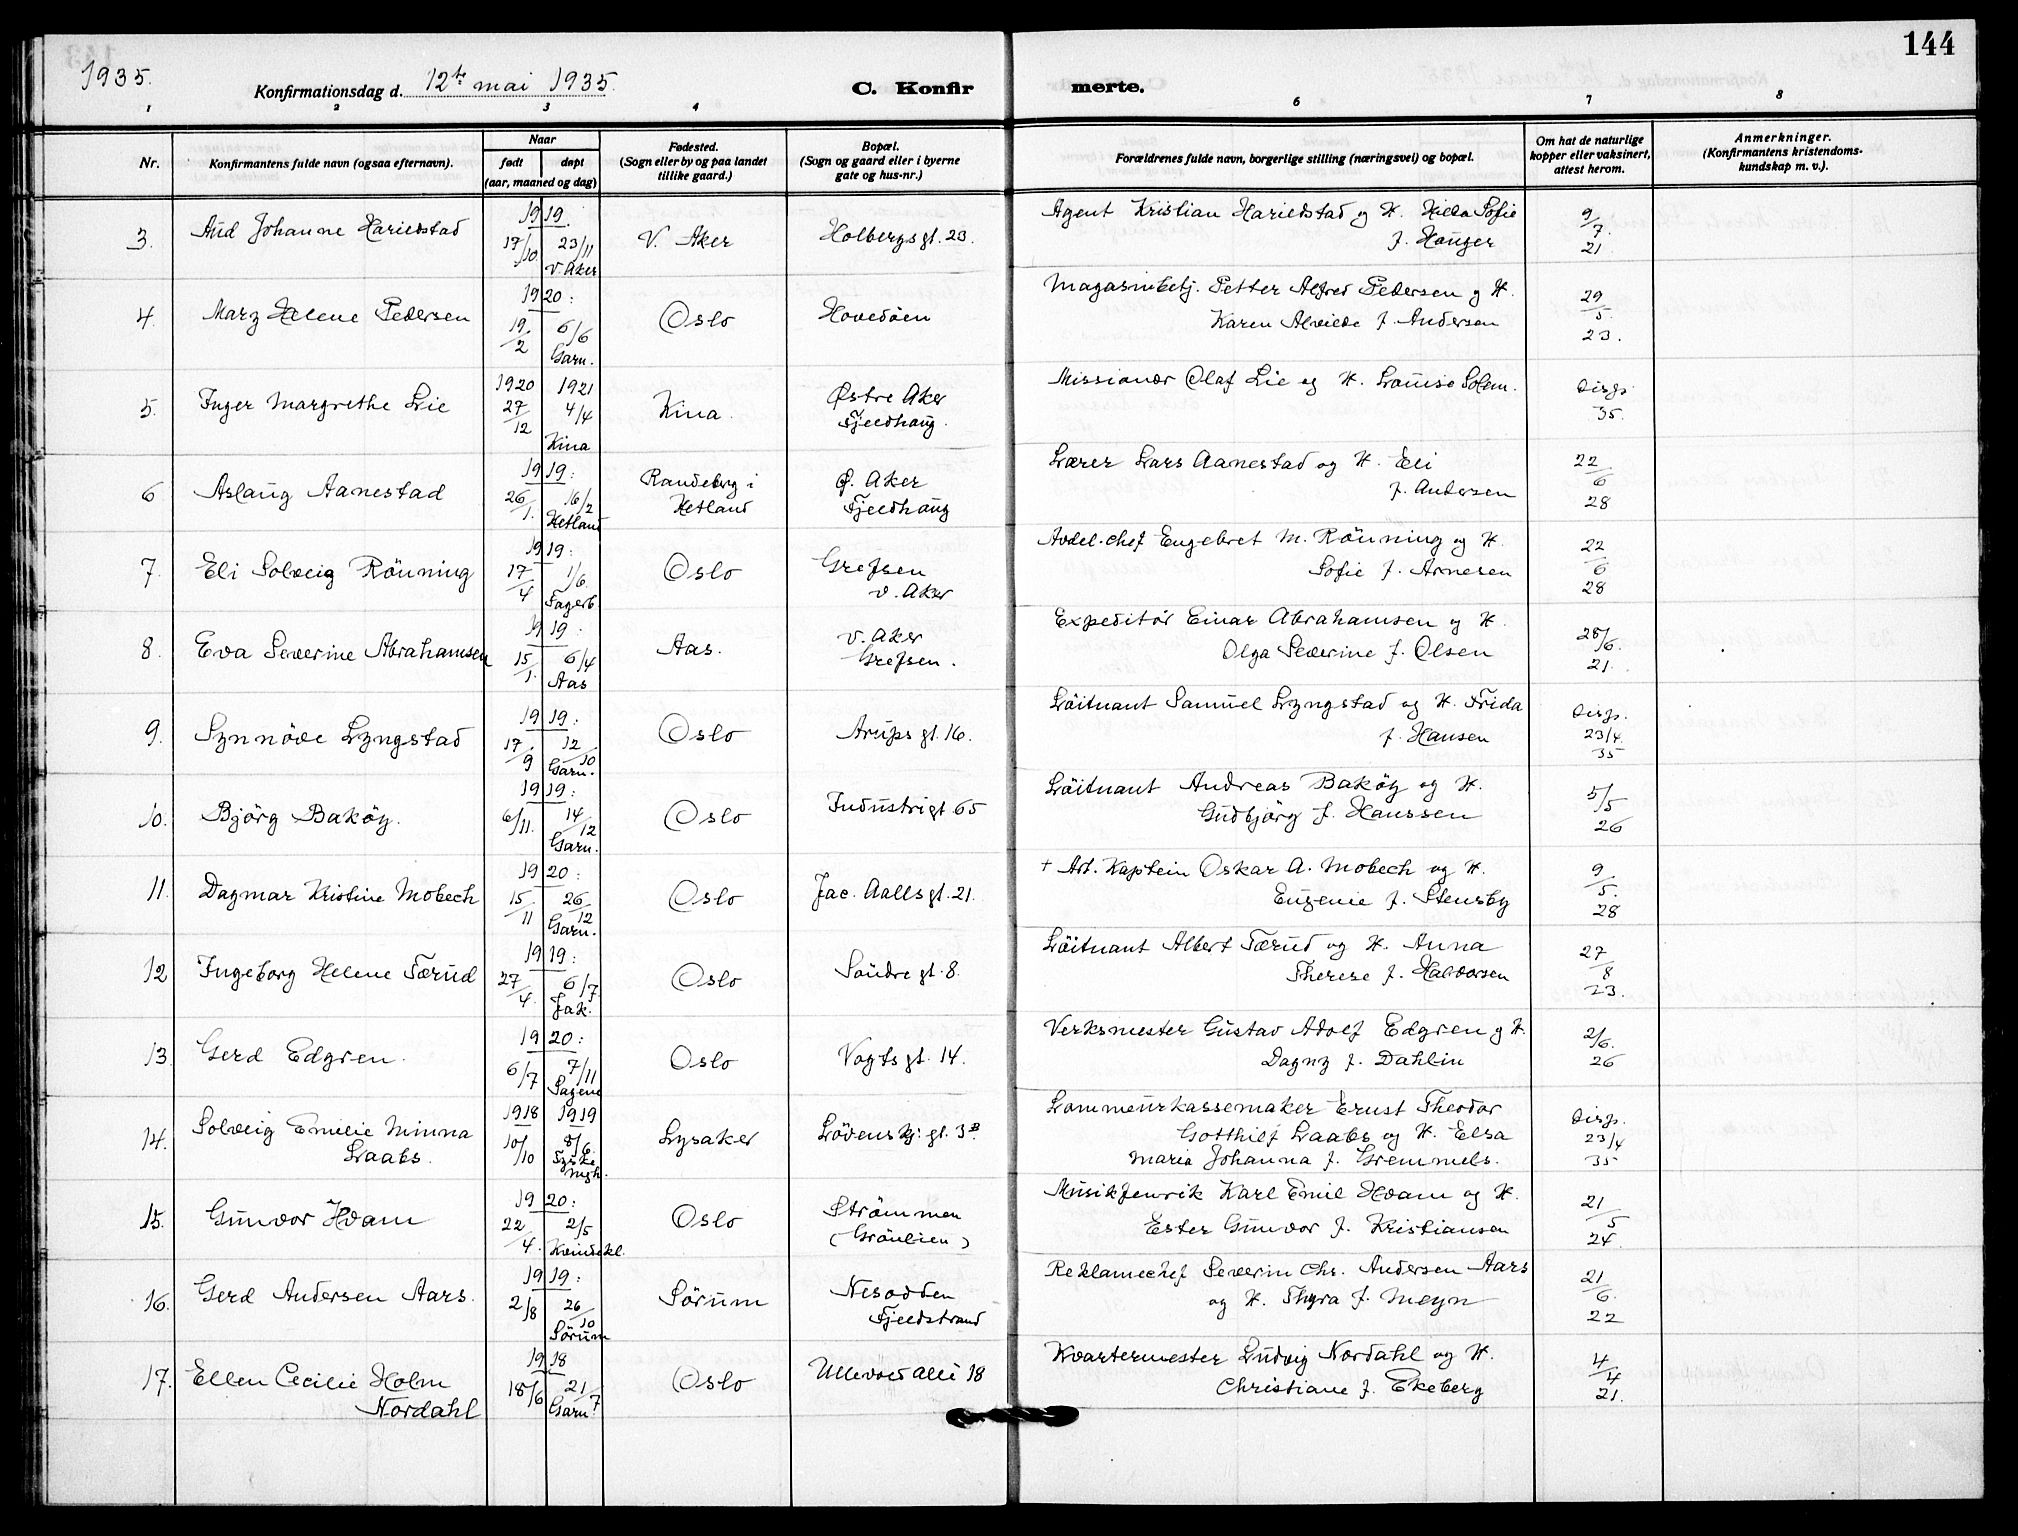 144
1935.
Konfirmationsdag d. 12te mai 1935.
C. Konfirmerte.
1 2 3 4 6 7 8
Nr.
Konfirmantens fulde navn (ogsaa efternavn).
Naar
født
døpt
(aar, maaned og dag)
Fødested.
(Sogn eller by og paa landet
tillike gaard.)
Bopæl.
(Sogn og gaard eller i byerne
gate og hus-nr.)
Forældrenes fulde navn, borgerlige stilling (næringsvei) og bopæl.
Om hat de naturlige
kopper eller vaksinert,
attest herom.
Anmerkninger.
(Konfirmantens kristendoms-
kundskap m. v.).
3. Aud Johanne Harildstad
1919.
17/10. 23/11 V. Aker
V. Aker
Holbergs gt. 23.
Agent Kristian Harildstad og H. Hilda Sofie
f. Hauger
9/7. 21.
4. Mary Helene Pedersen
1920:
19/2 6/6 Garn.
Oslo
Hovedöen
Magasinbetj. Petter Alfred Pedersen og H.
Karen Alvilde f. Andersen
29/5. 23.
5. Inger Margrethe Lie
1920 1921
27/12 4/4 Kina
Kina.
Østre Aker
Fjeldhaug.
Missionær Olaf Lie og H. Louise Solem.
Disp. 35.
6 Aslaug Aanestad
1919:
26/1. 16/2 Hetland
Randeberg i
Hetland
Ø. Aker
Fjeldhaug
Lærer Lars Aanestad og H. Eli
f. Andersen
22/6 28
7. Eli Solveig Rönning
1919:
17/4 1/6. Fagerb.
Oslo
Grefsen
V. Aker
Avdel.chef Engebret M. Rönning og H.
Sofie f. Arnesen
22/6 28
8. Eva Severine Abrahamsen
1919:
15/1. 6/4 Aas
Aas.
V. Aker
Grefsen.
Expeditör Einar Abrahamsen og H.
Olga Severine f. Olsen
28/6. 21.
9. Synnöve Lyngstad
1919:
17/9 12/10 Garn.
Oslo
Arups gt. 16.
Löitnant Samuel Lyngstad og H. Frida
f. Hansen
Disp. 23/4. 35
10. Björg Baköy.
1919:
6/11. 14/12 Garn.
Oslo
Industrigt 65
Löitnant Andreas Baköy og H.
Gudbjörg f. Hanssen
5/5 26
11. Dagmar Kristine Mobech
1920:
15/11 26/12 Garn.
Oslo
Jac. Aalls gt. 21.
+ Art. Kaptein Oskar A. Mobech og H.
Eugenie f. Stensby
9/5. 28
12 Ingeborg Helene Tærud
1919:
27/4. 6/7 Jak.
Oslo
Söndre gt. 8.
Löitnant Albert Tærud og H. Anna
Therese f. Halvorsen
27/8 23.
13. Gerd Edgren.
1920:
6/7 7/11 Sagene
Oslo
Vogts gt. 14.
Verksmester Gustav Adolf Edgren og H.
Dagny f. Dahlin
2/6. 26
14. Solveig Emilie Minna
Laabs.
1918 1919
10/10 8/6. Tyske mgh.
Lysaker
Lövenskj: gt. 3B.
Lommeurkassemaker Ernst Theodor
Gotthilf Laabs og H. Elsa
Maria Johanna f. Gremmels.
Disp. 23/4 35
15. Gunvor Hvam
1920:
22/4. 2/5 Kvindekl.
Oslo
Strömmen
(Grönlien)
Musikfenrik Karl Emil Hvam og H.
Ester Gunvor f. Kristiansen
21/5 24.
16. Gerd Andersen Aars.
1919:
2/8 26/10 Sörum
Sörum
Nesodden
Fjeldstrand
Reklamechef Severin Chr. Andersen Aars
og H. Thyra f. Meyn
21/6. 22
17. Ellen Cecilie Holm
Nordahl
1918
18/6 21/7 Garn
Oslo
Ullevold alle 18
Kvartermester Ludvig Nordahl og H.
Christiane f. Ekeberg
4/4 21.